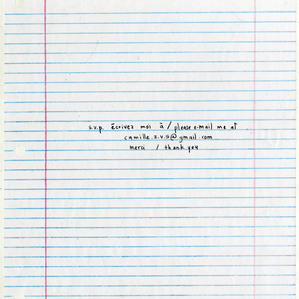 s.v.p. écrivez moi à / please e-mail me at
camille.z.v.s@gmail.com
merci / thank you